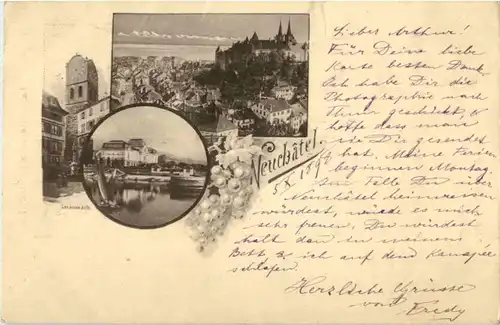 Lieber Arthur!
Für Deine liebe
Karte besten Dank.
Ich habe Dir die
Photographie nach
geschickt, &
hoffe dass man
sie Dir gesendet
hat. Meine Ferien
beginnen Montag.
Im Falle Du über
Neuchâtel heimreisen
würdest, würde es mich
sehr freuen. Du würdest
halt dann in meinem
Bett & ich auf dem Kanapee
schlafen.
Herzliche Grüsse
von Fredy
Neuchâtel
5 X 1897